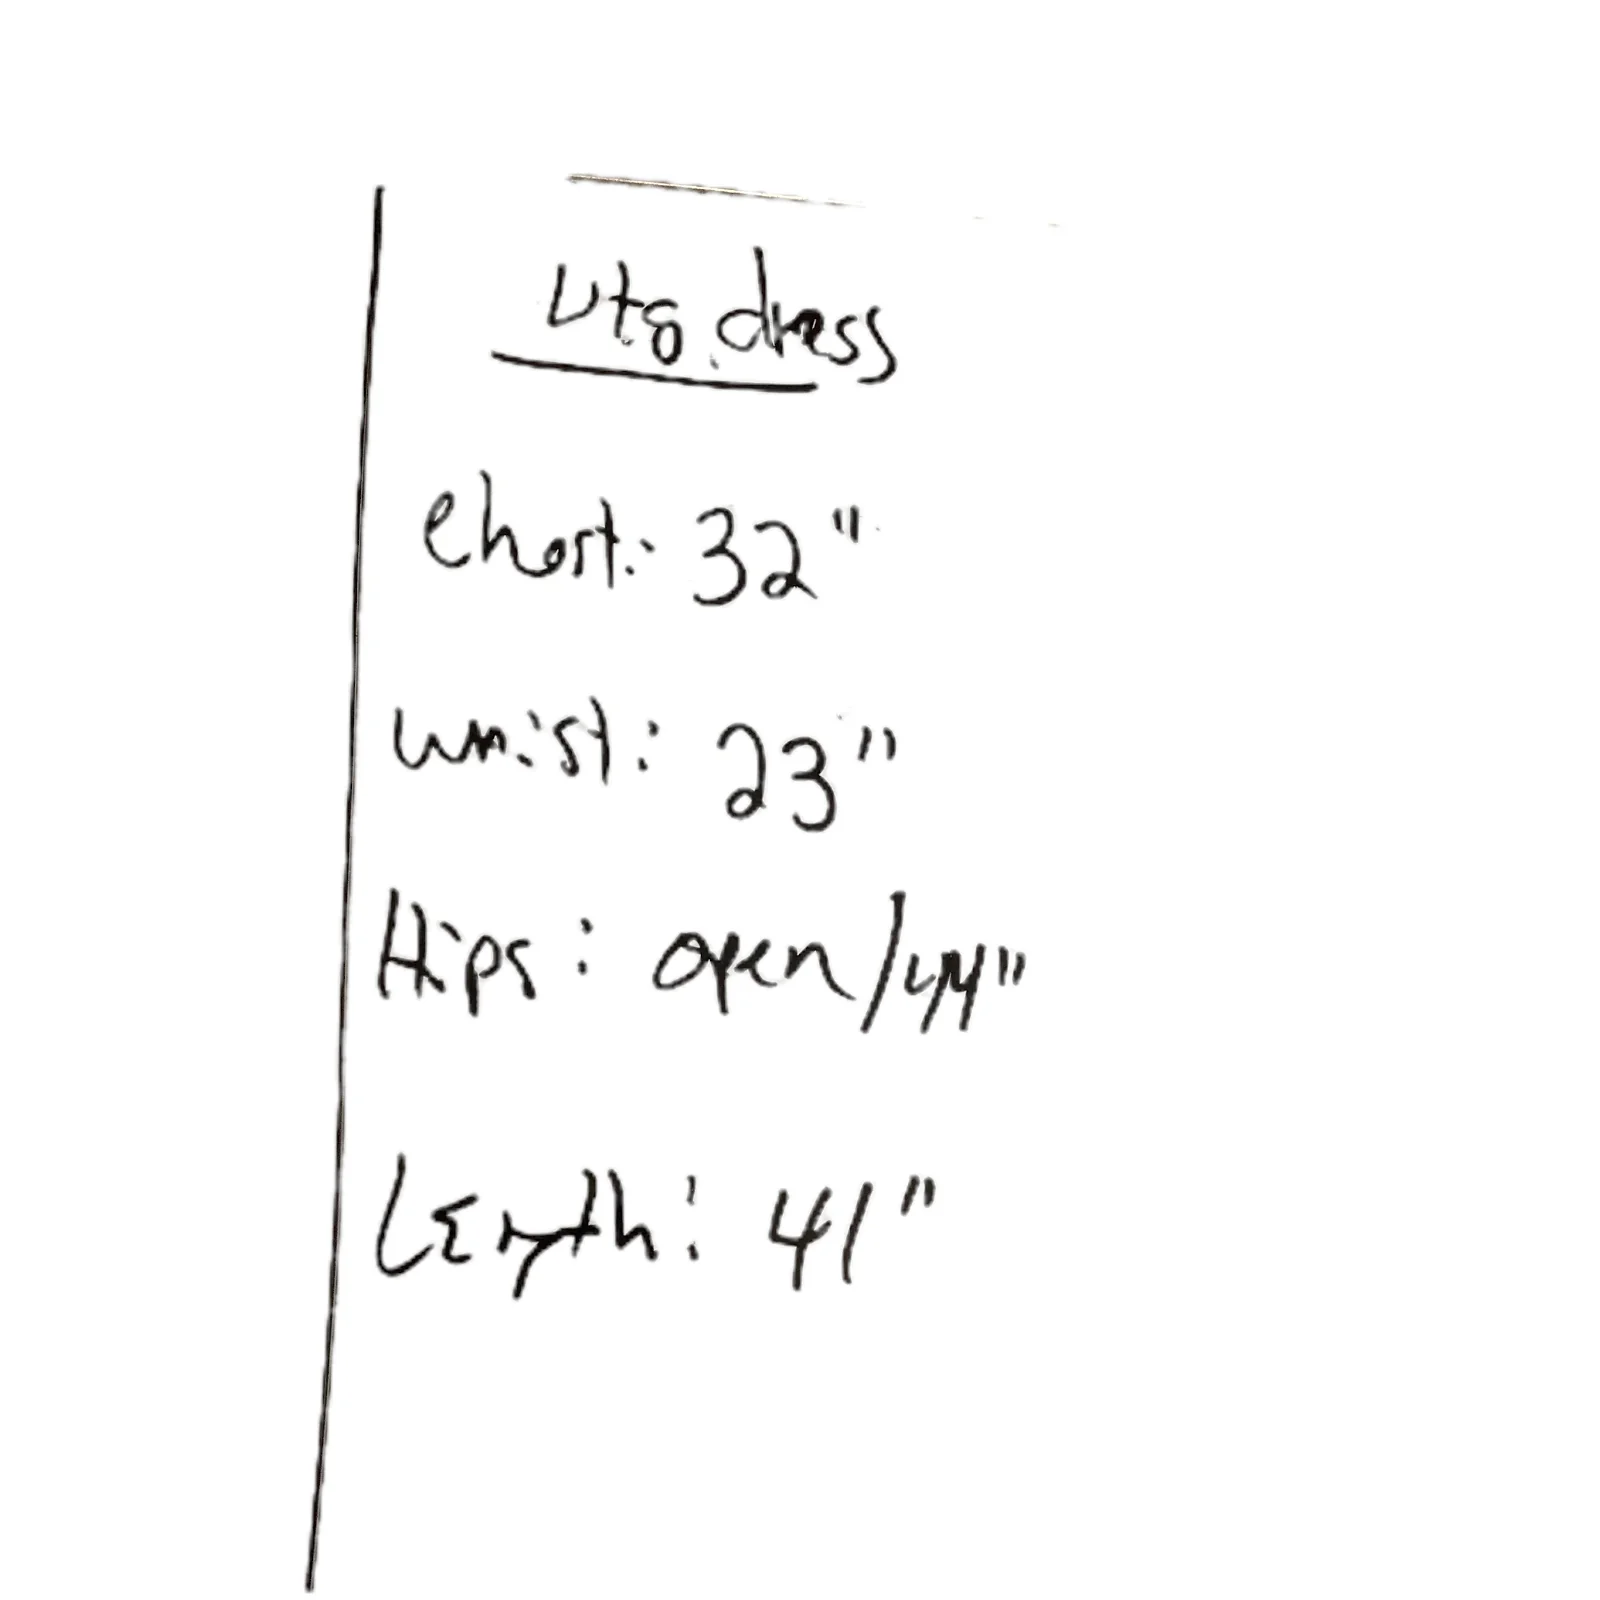 Vtg. dress
Chest: 32"
Waist: 23"
Hips: open/44"
Length: 41"